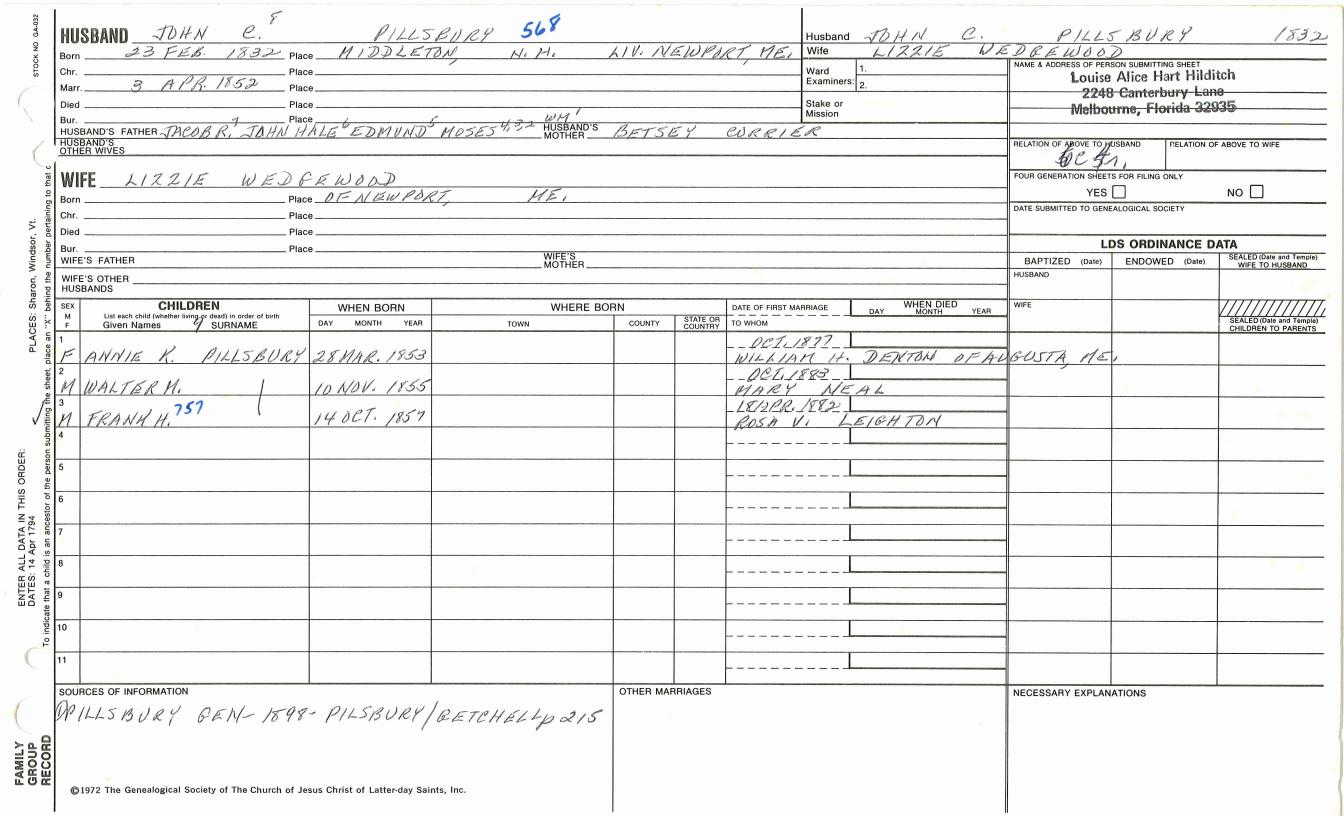 HUSBAND JOHN C. 8 PILLSBURY 568
Born 23 FEB. 1832 Place MIDDLETON, N.H. LIV. NEWPORT, ME.
Chr. Place
Marr. 3 APR. 1852 Place
Died Place
Bur. Place
HUSBAND'S FATHER JACOB R. 7 JOHN HALE 6 EDMUND 5 MOSES 4,3,2 WM 1 HUSBAND'S MOTHER BETSEY CURRIER
HUSBAND'S OTHER WIVES
Husband JOHN C. PILLSBURY 1832
Wife LIZZIE WEDGEWOOD
Ward Examiners: 1.
2.
Stake or Mission
NAME & ADDRESS OF PERSON SUBMITTING SHEET
Louise Alice Hart Hilditch
2248 Canterbury Lane
Melbourne, Florida 32935
RELATION OF ABOVE TO HUSBAND RELATION OF ABOVE TO WIFE
FOUR GENERATION SHEETS FOR FILING ONLY
YES NO
DATE SUBMITTED TO GENEALOGICAL SOCIETY
WIFE LIZZIE WEDGEWOOD
Born Place OF NEWPORT, ME.
Chr. Place
Died Place
Bur. Place
WIFE'S FATHER WIFE'S MOTHER
WIFE'S OTHER HUSBANDS
LDS ORDINANCE DATA
BAPTIZED (Date) ENDOWED (Date) SEALED (Date and Temple) WIFE TO HUSBAND
HUSBAND
WIFE
SEALED (Date and Temple) CHILDREN TO PARENTS
SEX M F
CHILDREN
List each child (whether living or dead) in order of birth
Given Names 9 SURNAME
WHEN BORN
DAY MONTH YEAR
WHERE BORN
TOWN COUNTY STATE OR COUNTRY
DATE OF FIRST MARRIAGE
TO WHOM
WHEN DIED
DAY MONTH YEAR
1 OCT. 1877
F ANNIE K. PILLSBURY 28 MAR. 1853 WILLIAM H. DENTON OF AUGUSTA, ME.
2 OCT. 1883
M WALTER M. 10 NOV. 1855 MARY NEAL
3 18 APR. 1882
M FRANK H. 757 14 OCT. 1857 ROSA V. LEIGHTON
4
5
6
7
8
9
10
11
SOURCES OF INFORMATION
PILLSBURY GEN- 1898- PILSBURY/GETCHELL p 215
OTHER MARRIAGES
NECESSARY EXPLANATIONS
©1972 The Genealogical Society of The Church of Jesus Christ of Latter-day Saints, Inc.
STOCK NO. GA-032
PLACES: Sharon, Windsor, Vt.
ENTER ALL DATA IN THIS ORDER:
DATES: 14 Apr 1794
To indicate that a child is an ancestor of the person submitting the sheet, place an "X" behind the number pertaining to that c
FAMILY GROUP RECORD